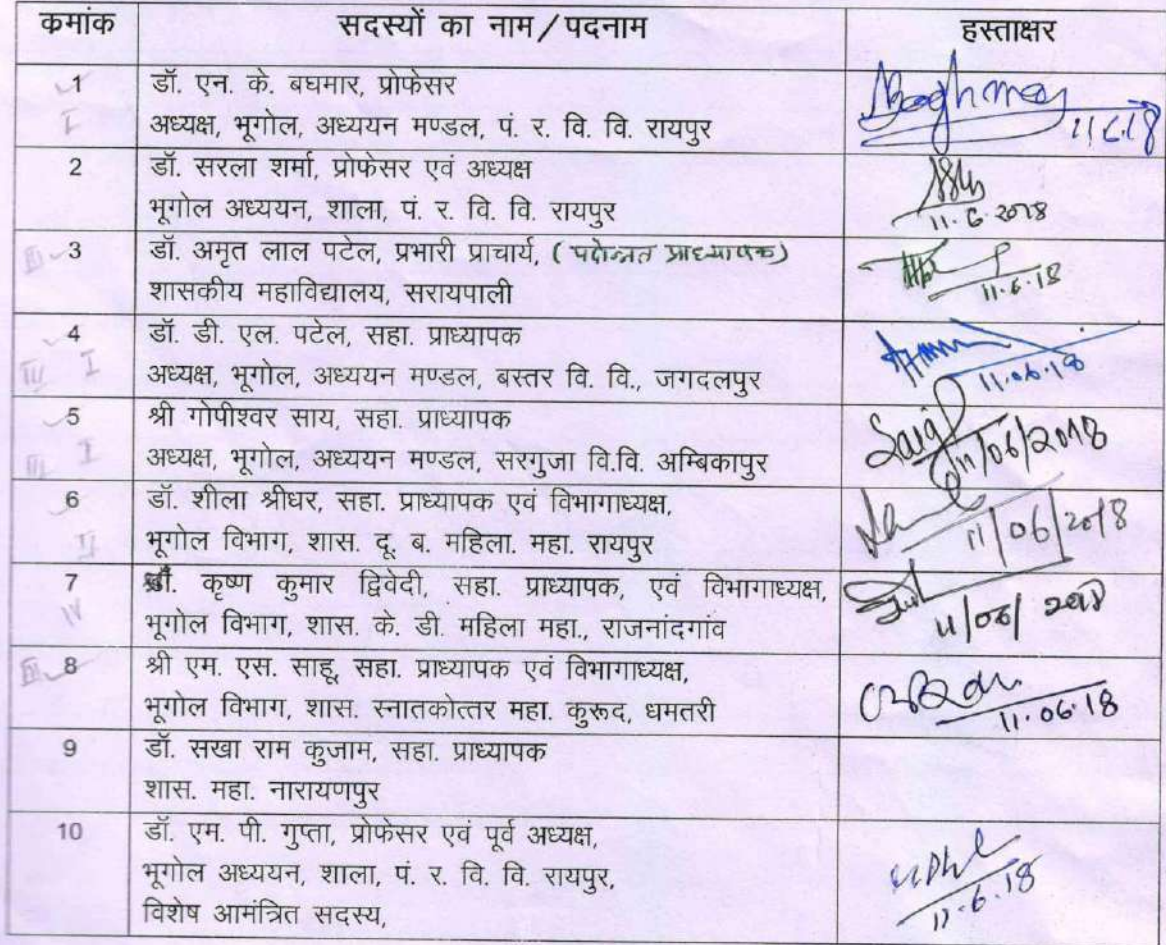 कमांक सदस्यों का नाम/पदनाम हस्ताक्षर
1 डॉ. एन. के. बघमार, प्रोफेसर
I अध्यक्ष, भूगोल, अध्ययन मण्डल, पं. र. वि. वि. रायपुर 11.6.18
2 डॉ. सरला शर्मा, प्रोफेसर एवं अध्यक्ष
भूगोल अध्ययन, शाला, पं. र. वि. वि. रायपुर 11.6.2018
III 3 डॉ. अमृत लाल पटेल, प्रभारी प्राचार्य, (पदोन्नत प्राध्यापक)
शासकीय महाविद्यालय, सरायपाली 11.6.18
4 डॉ. डी. एल. पटेल, सहा. प्राध्यापक
III I अध्यक्ष, भूगोल, अध्ययन मण्डल, बस्तर वि. वि., जगदलपुर 11.06.18
5 श्री गोपीश्वर साय, सहा. प्राध्यापक
III I अध्यक्ष, भूगोल, अध्ययन मण्डल, सरगुजा वि.वि. अम्बिकापुर 11/06/2018
6 डॉ. शीला श्रीधर, सहा. प्राध्यापक एवं विभागाध्यक्ष,
II भूगोल विभाग, शास. दू. ब. महिला. महा. रायपुर 11/06/2018
7 कृष्ण कुमार द्विवेदी, सहा. प्राध्यापक, एवं विभागाध्यक्ष,
IV भूगोल विभाग, शास. के. डी. महिला महा., राजनांदगांव 11/06/2018
III 8 श्री एम. एस. साहू, सहा. प्राध्यापक एवं विभागाध्यक्ष,
भूगोल विभाग, शास. स्नातकोत्तर महा. कुरूद, धमतरी 11.06.18
9 डॉ. सखा राम कुजाम, सहा. प्राध्यापक
शास. महा. नारायणपुर
10 डॉ. एम. पी. गुप्ता, प्रोफेसर एवं पूर्व अध्यक्ष,
भूगोल अध्ययन, शाला, पं. र. वि. वि. रायपुर,
विशेष आमंत्रित सदस्य, 11.6.18